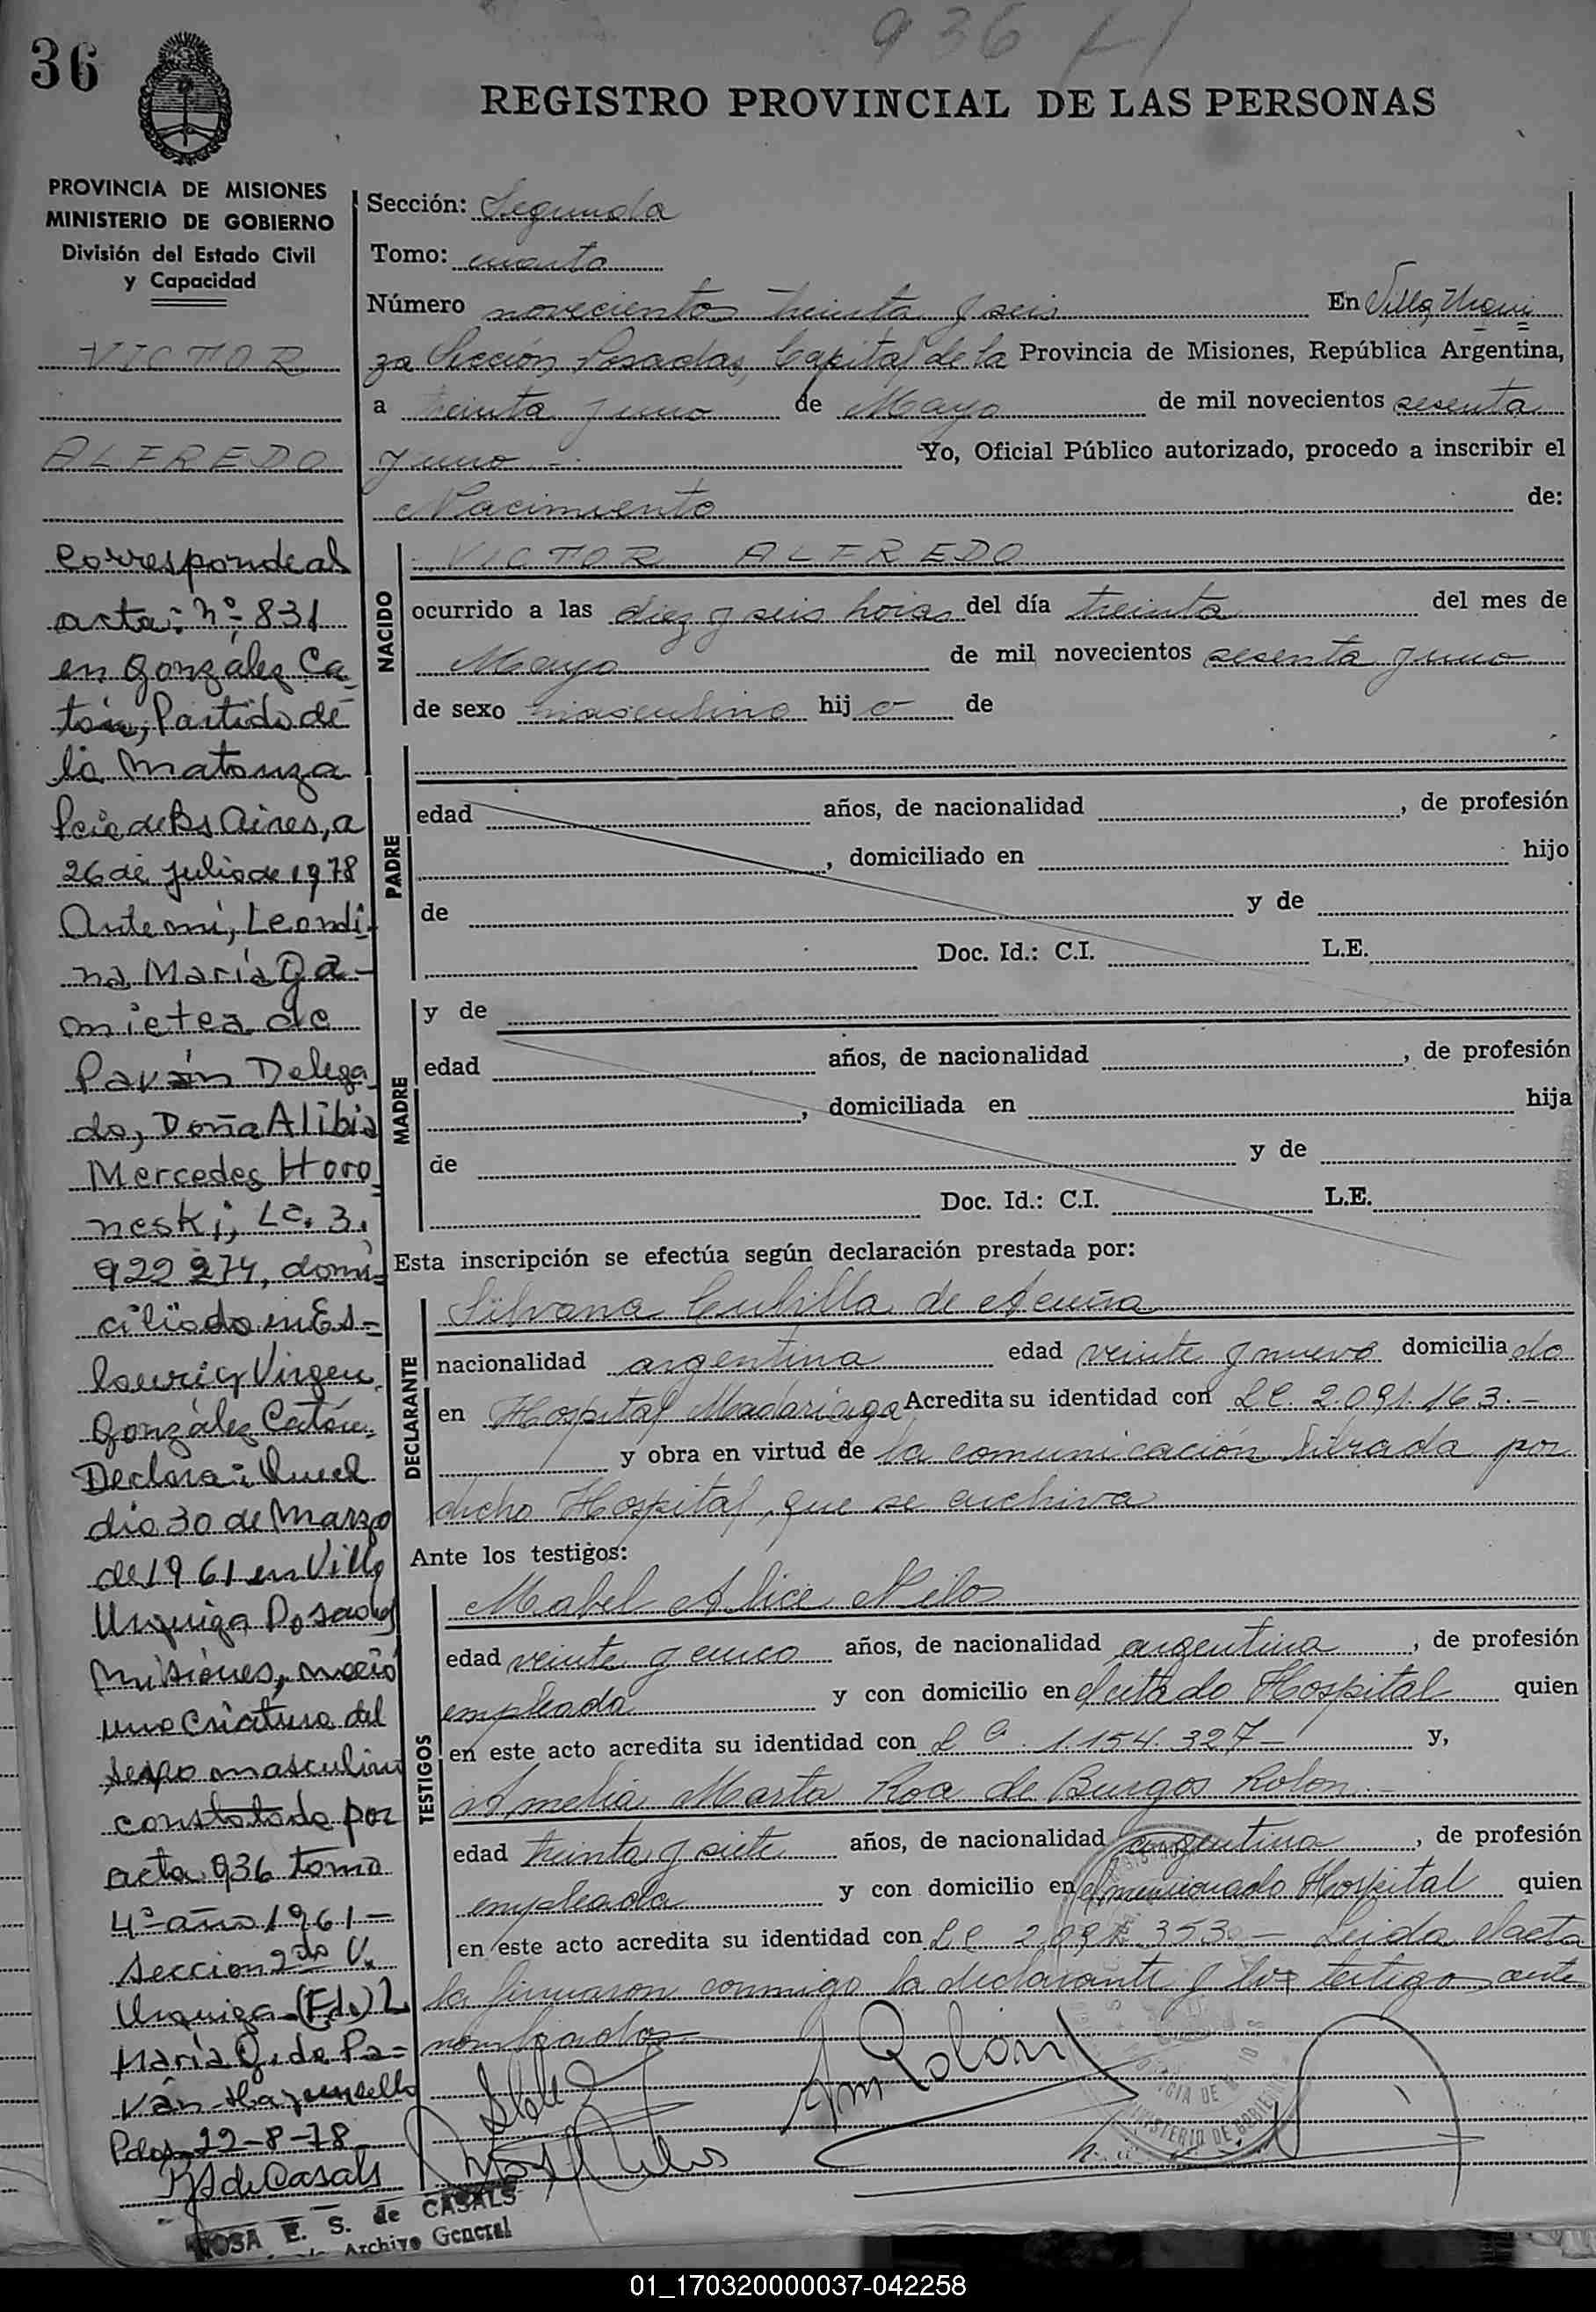 936
36
REGISTRO PROVINCIAL DE LAS PERSONAS
PROVINCIA DE MISIONES
MINISTERIO DE GOBIERNO
División del Estado Civil
y Capacidad
VICTOR
ALFREDO
corresponde al
acta: nº 831
en González Ca-
tán, Partido de
la Matanza
Pcia de Bs Aires, a
26 de Julio de 1978
Ante mi, Leondi-
na María Ga-
mietea de
Paván Delega
do, Doña Alibia
Mercedes Horo
neski, Lc. 3.
922 274, domi-
ciliado en Es-
Virgen
González Catán.
Declara: Que el
dia 30 de Marzo
de 1961 en Villa
Urquiza Posadas
Misiones, nació
una criatura del
sexo masculino
constatado por
acta 936 tomo
4º año 1961 -
Seccion 2da V.
Urquiza - (Fdo) L
María G. de Pa-
ván
Pdas 22-8-78
RS de Casals
ROSA E. S. de CASALS
Archivo General
Sección: Segunda
Tomo: cuarto
Número novecientos treinta y seis En Villa Urqui
za Sección Posadas, Capital de la Provincia de Misiones, República Argentina,
a treinta y uno de Mayo de mil novecientos sesenta
y uno.- Yo, Oficial Público autorizado, procedo a inscribir el
Nacimiento de:
NACIDO
VICTOR ALFREDO
ocurrido a las diez y seis horas del día treinta del mes de
Mayo de mil novecientos sesenta y uno
de sexo masculino hij o de
PADRE
edad años, de nacionalidad , de profesión
, domiciliado en hijo
de y de
Doc. Id.: C.I. L.E.
MADRE
y de
edad años, de nacionalidad , de profesión
, domiciliada en hija
de y de
Doc. Id.: C.I. L.E.
Esta inscripción se efectúa según declaración prestada por:
DECLARANTE
Silvana Cubilla de Acuña
nacionalidad argentina edad veinte y nueve domicilia da
en Hospital Madariaga Acredita su identidad con LC. 2.091.163.-
y obra en virtud de la comunicación librada por
dicho Hospital, que se archiva
Ante los testigos:
TESTIGOS
Mabel Alice Nilos
edad veinte y cinco años, de nacionalidad argentina , de profesión
empleada y con domicilio en el citado Hospital quien
en este acto acredita su identidad con L C. 1.154.327- y,
Amelia Marta Roa de Burgos Rolon.-
edad treinta y siete años, de nacionalidad argentina , de profesión
empleada y con domicilio en el mencionado Hospital quien
en este acto acredita su identidad con LC 353 - Leida el acta
la firmaron conmigo la declarante y los testigo ante
nombrados
Am Rolon
MINISTERIO DE GOBIERNO
01_170320000037-042258